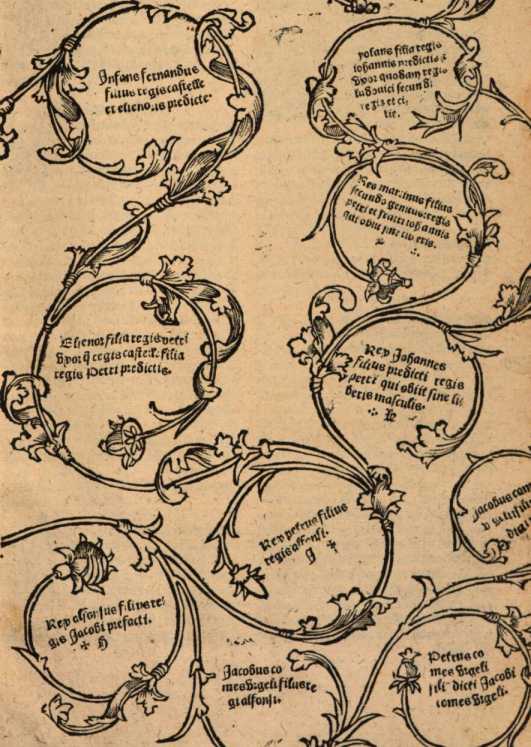 Infans fernandus
filius regis castelle
et elienoris predicte.
yolans filia regis
iohannis predicti
vxor quondam regis
ludouici secundi
regis et ci
lie.
Rex martinus filius
secundo genitus regis
petri et frater iohannis
qui obiit
Elienor filia regis petri
vxor q̃ regis castelle. filia
regis Petri predictis.
Rex Johannes
filius predicti regis
petri qui obiit sine li
beris masculis.
Rex petrus filius
regis alfonsi.
Jacobus com
Rex alfonsus filius re
gis Jacobi prefacti.
Jacobus co
mes vrgeli filius re
gi alfonsi.
Petrus co
mes vrgeli
fili' dicti Jacobi
comes vrgeli.